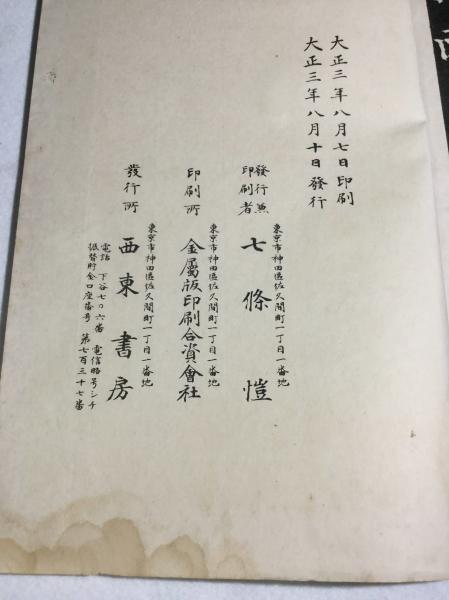 大正三年八月七日印刷
大正三年八月十日發行
東京市神田區佐久間町一丁目一番地
發行兼
印刷者
七條愷
東京市神田區佐久間町一丁目一番地
印刷所
金屬版印刷合資會社
東京市神田區佐久間町一丁目一番地
發行所
西東書房
電話 下谷七〇六番 電信略号シチ
振替貯金口座番号 第七百三十七番